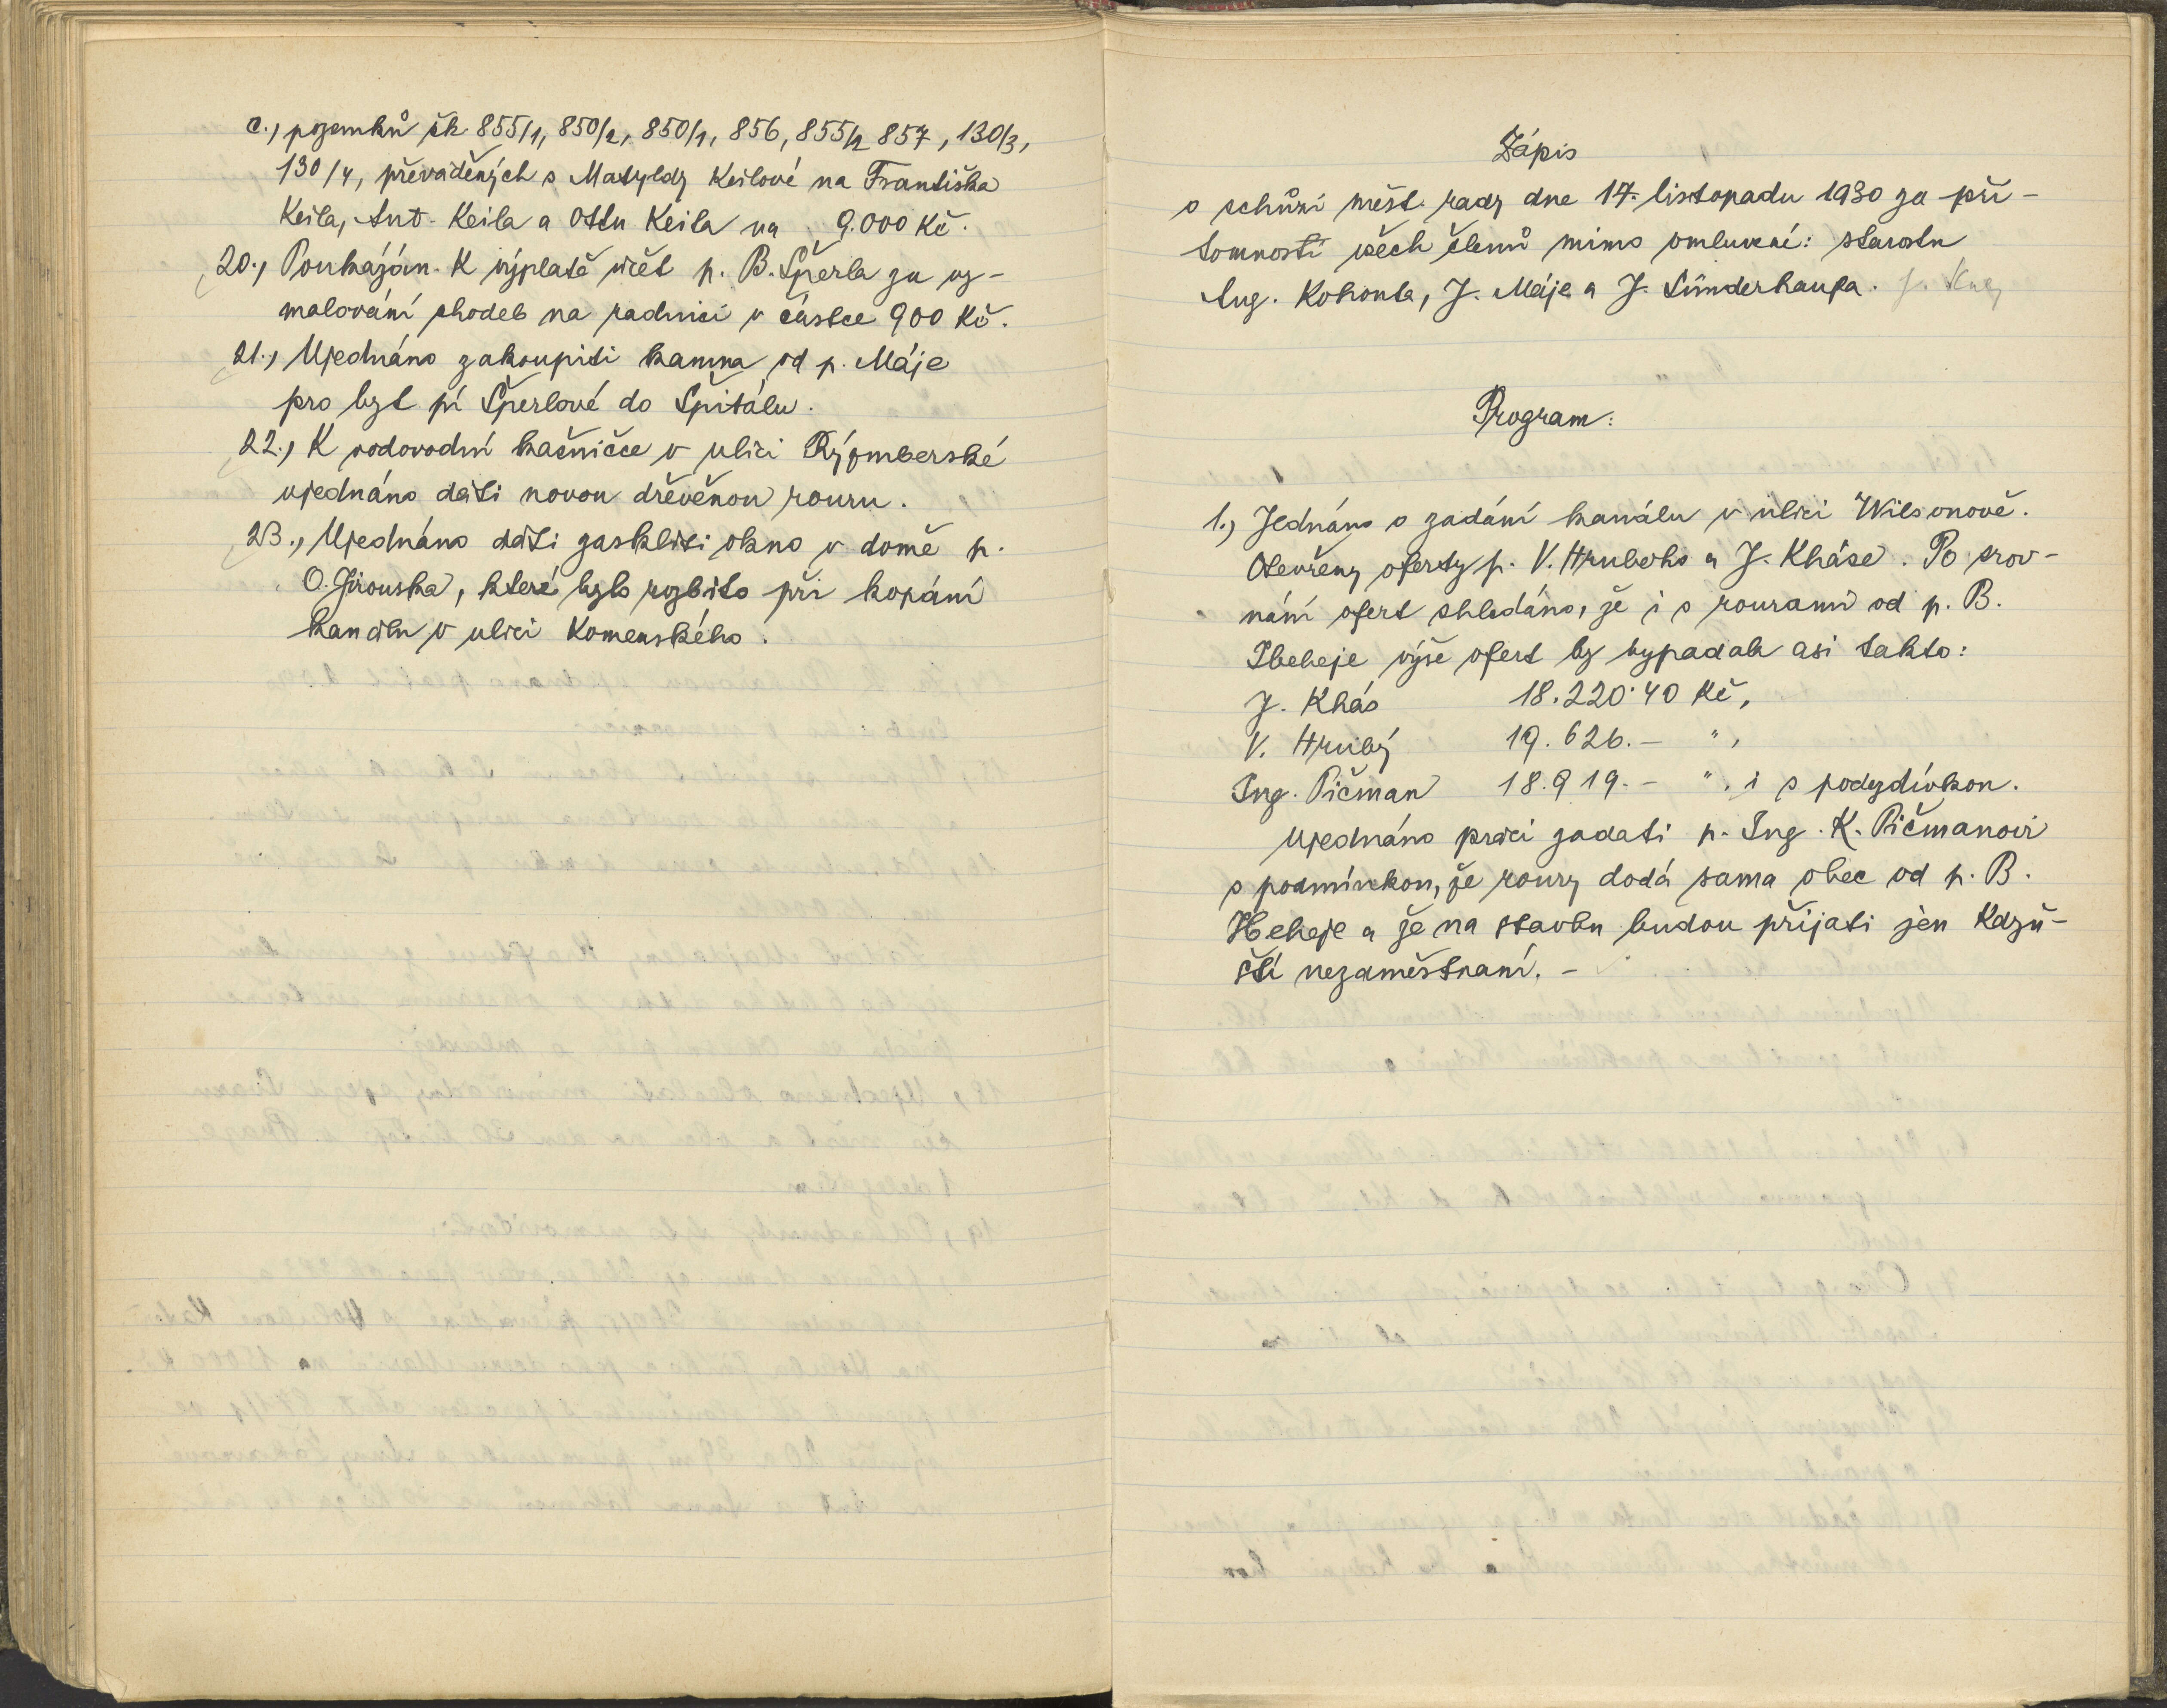 c., pozemků čk. 855/1, 850/2, 850/1, 856, 855/2 857, 130/3,
130/4, převáděných s Matyldy Keilové na Františka
Keila, Ant. Keila a Ottu Keila na 9.000 Kč.
20., Poukázán k výplatě účet p. B. Šperla za vy-
malování chodeb na radnici v částce 900 Kč.
21., Ujednáno zakoupiti kamna od p. Máje
pro byt pí Šperlové do Špitálu.
22., K vodovodní kašničce v ulici Rýzmberské
ujednáno dáti novou dřevěnou rouru.
23., Ujednáno dáti zaskliti okno v domě p.
O. Jirouska, které bylo rozbito při kopání
kanálu v ulici Komenského.
Zápis
o schůzi měst. rady dne 17. listopadu 1930 za pří-
tomnosti všech členů mimo omluvení: starostu
Aug. Kohouta, J. Máje a J. Sünderhaufa.
Program:
1., Jednáno o zadání kanálu v ulici Wilsonově.
Otevřeny oferty p. V. Hrubého a J. Kháse. Po srov-
nání ofert shledáno, že i s rourami od p. B.
výše ofert by vypadala asi takto:
J. Khás 18.220·40 Kč,
V. Hrubý 19.626.- " ,
Ing. Pičman 18.919.- " , i s podezdívkou.
Ujednáno práci zadati p. Ing. K. Pičmanovi
s podmínkou, že roury dodá sama obec od p. B.
a že na stavbu budou přijati jen Kdyň-
ští nezaměstnaní. -